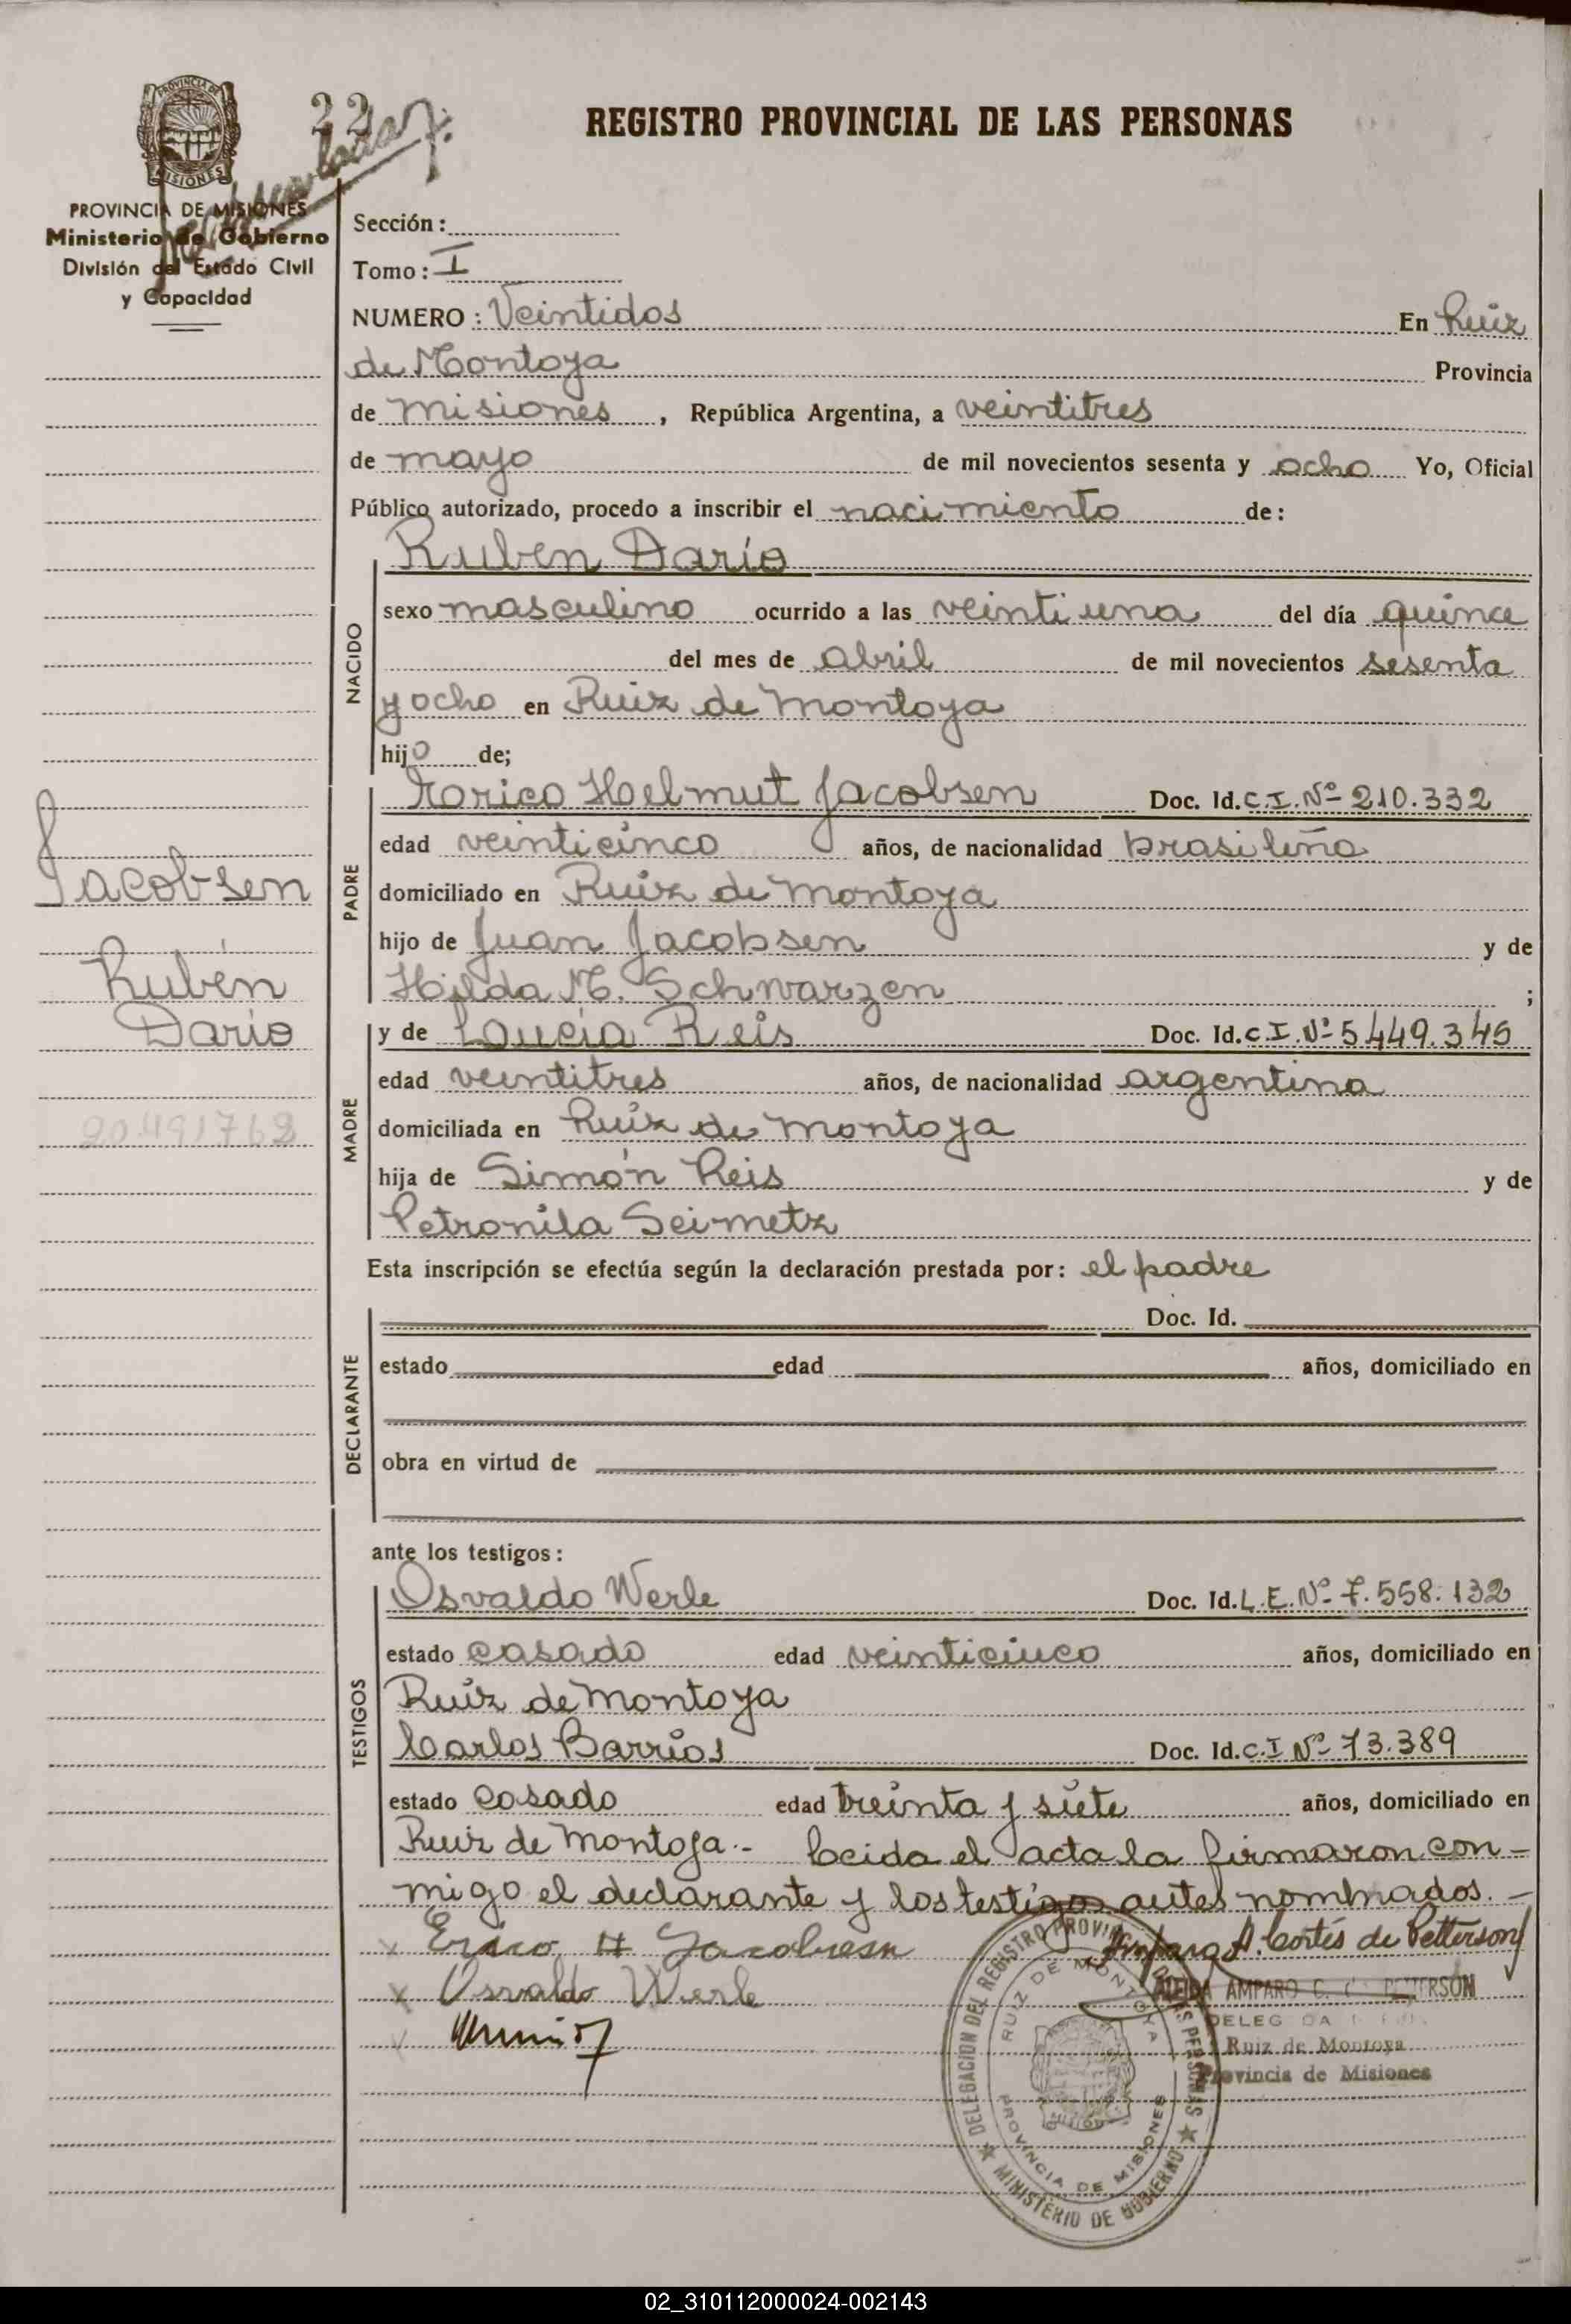 22
REGISTRO PROVINCIAL DE LAS PERSONAS
PROVINCIA DE MISIONES
PROVINCIA DE MISIONES
Ministerio de Gobierno
División del Estado Civil
y Capacidad
Sección:
Tomo: I
NUMERO: Veintidos En Ruiz
de Montoya Provincia
de misiones, República Argentina, a veintitres
de mayo de mil novecientos sesenta y ocho Yo, Oficial
Público autorizado, procedo a inscribir el nacimiento de:
Ruben Darío
NACIDO
sexo masculino ocurrido a las veintiuna del día quince
del mes de abril de mil novecientos sesenta
y ocho en Ruiz de Montoya
hijo de;
Helmut Jacobsen Doc. Id. C.I. Nº 210.332
PADRE
edad veinticinco años, de nacionalidad brasileña
domiciliado en Ruiz de Montoya
hijo de Juan Jacobsen y de
Hilda M. Schwarzen ;
Jacobsen
Rubén
Darío
20.491762
y de Loucia Reis Doc. Id. C.I. Nº 5449.345
MADRE
edad veintitres años, de nacionalidad argentina
domiciliada en Ruiz de Montoya
hija de Simón Reis y de
Petronila Seimetz
Esta inscripción se efectúa según la declaración prestada por: el padre
DECLARANTE
Doc. Id.
estado edad años, domiciliado en
obra en virtud de
ante los testigos:
TESTIGOS
Osvaldo Werle Doc. Id. L.E. Nº 7.558.132
estado casado edad veinticinco años, domiciliado en
Ruiz de Montoya
Carlos Barrios Doc. Id. C.I Nº 73.389
estado casado edad treinta y siete años, domiciliado en
Ruiz de Montoya.- Leida el acta la firmaron con-
migo el declarante y los testigos antes nombrados.-
Erico H Jacobsen Amparo A. Cortés de Petterson
Osvaldo Werle
AMPARO C. PETTERSON
DELEGADA
Ruiz de Montoya
Provincia de Misiones
DELEGACION DEL REGISTRO PROVINCIAL DE LAS PERSONAS
RUIZ DE MONTOYA
PROVINCIA DE MISIONES
MINISTERIO DE GOBIERNO
02_310112000024-002143